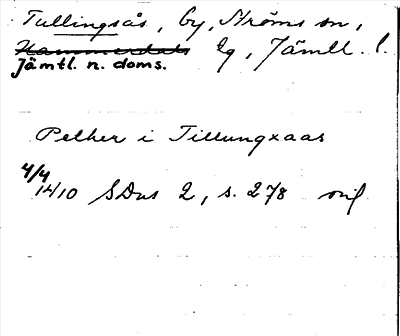 Tullingsås, by, Ströms sn,
Hammerdals tg, Jämtl. l.
Jämtl. n. doms.
Pether i Tillungxaas
4/4
14/10 SDns 2, s. 278 orig